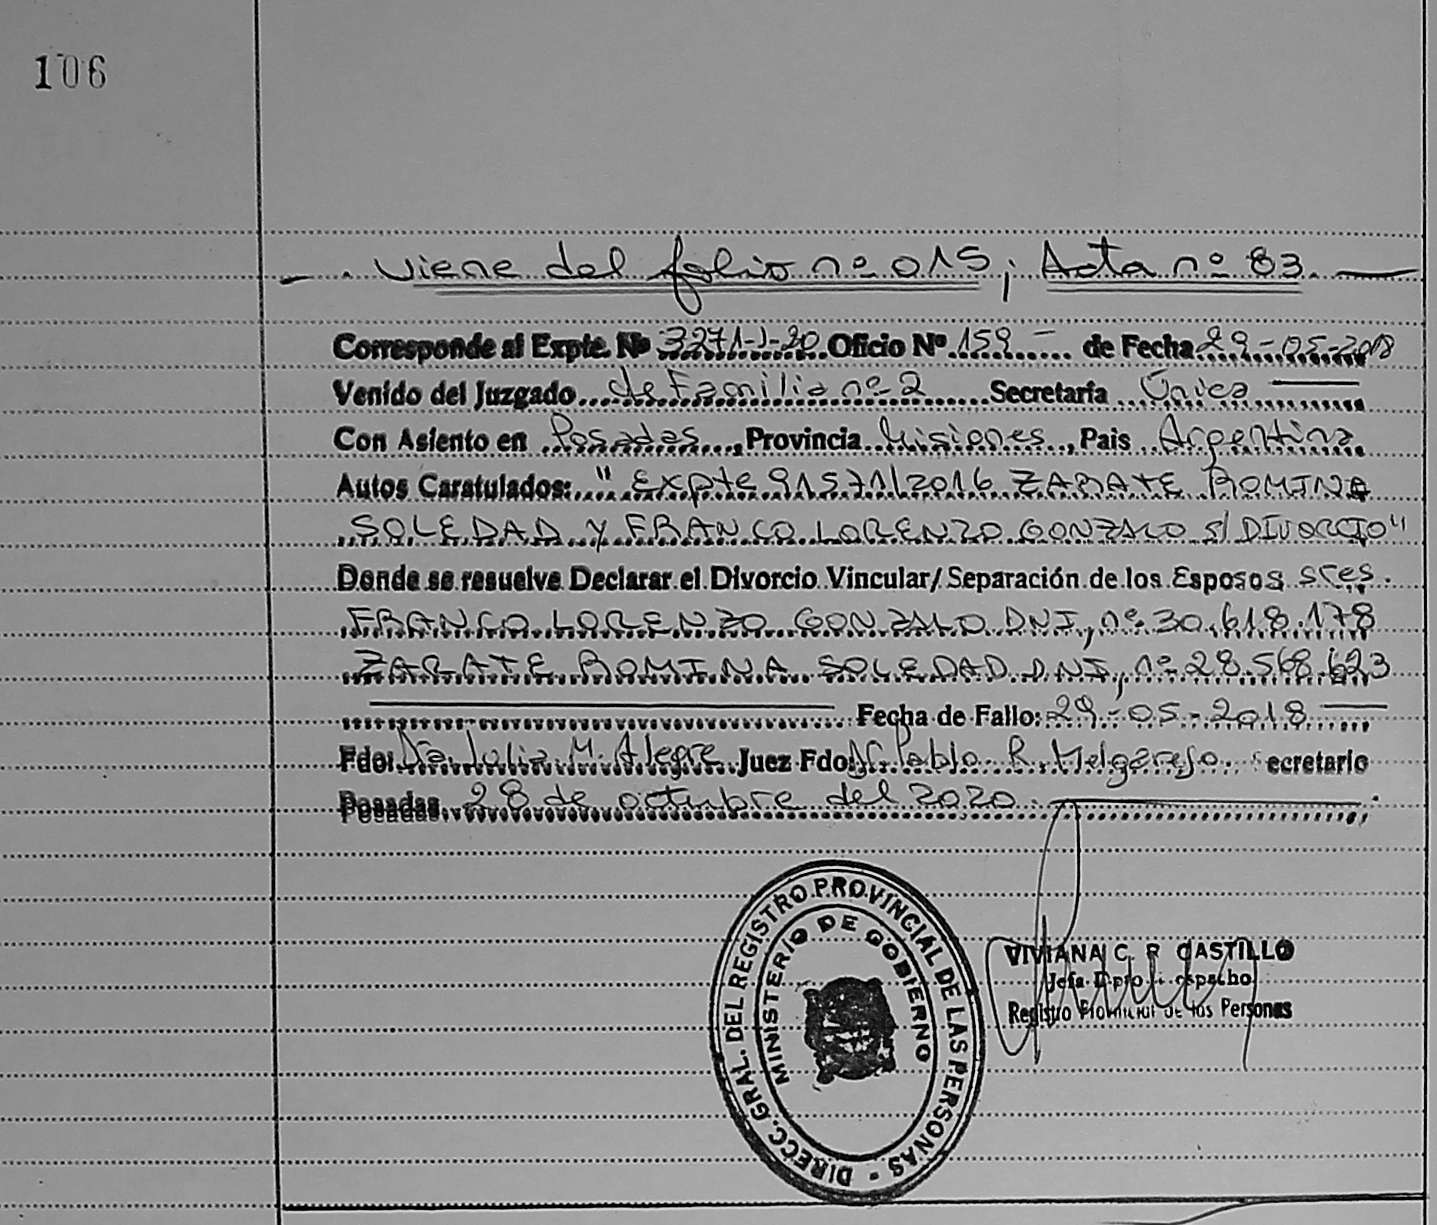 106
Viene del folio nº 015; Acta nº 83.
Corresponde al Expte. Nº 3271-J-20 Oficio Nº 159 - de Fecha 29-05-2018
Venido del Juzgado de Familia nº 2 Secretaría Única
Con Asiento en Posadas, Provincia Misiones, Pais Argentina
Autos Caratulados: "Expte 91571/2016 ZARATE ROMINA
SOLEDAD Y FRANCO LORENZO GONZALO S/ DIVORCIO"
Donde se resuelve Declarar el Divorcio Vincular/Separación de los Esposos sres.
FRANCO LORENZO GONZALO DNI, nº 30.618.178
ZARATE ROMINA SOLEDAD DNI, nº 28.568.623
Fecha de Fallo: 29-05-2018
Fdo: Dra Julia M. Alegre Juez Fdo: Dr. Pablo R. Melgarejo. ecretario
Posadas, 28 de octubre del 2020.
DIRECC. GRAL. DEL REGISTRO PROVINCIAL DE LAS PERSONAS -
MINISTERIO DE GOBIERNO
VIVIANA C. R CASTILLO
Jefa Dpto
Registro Provincial de las Personas